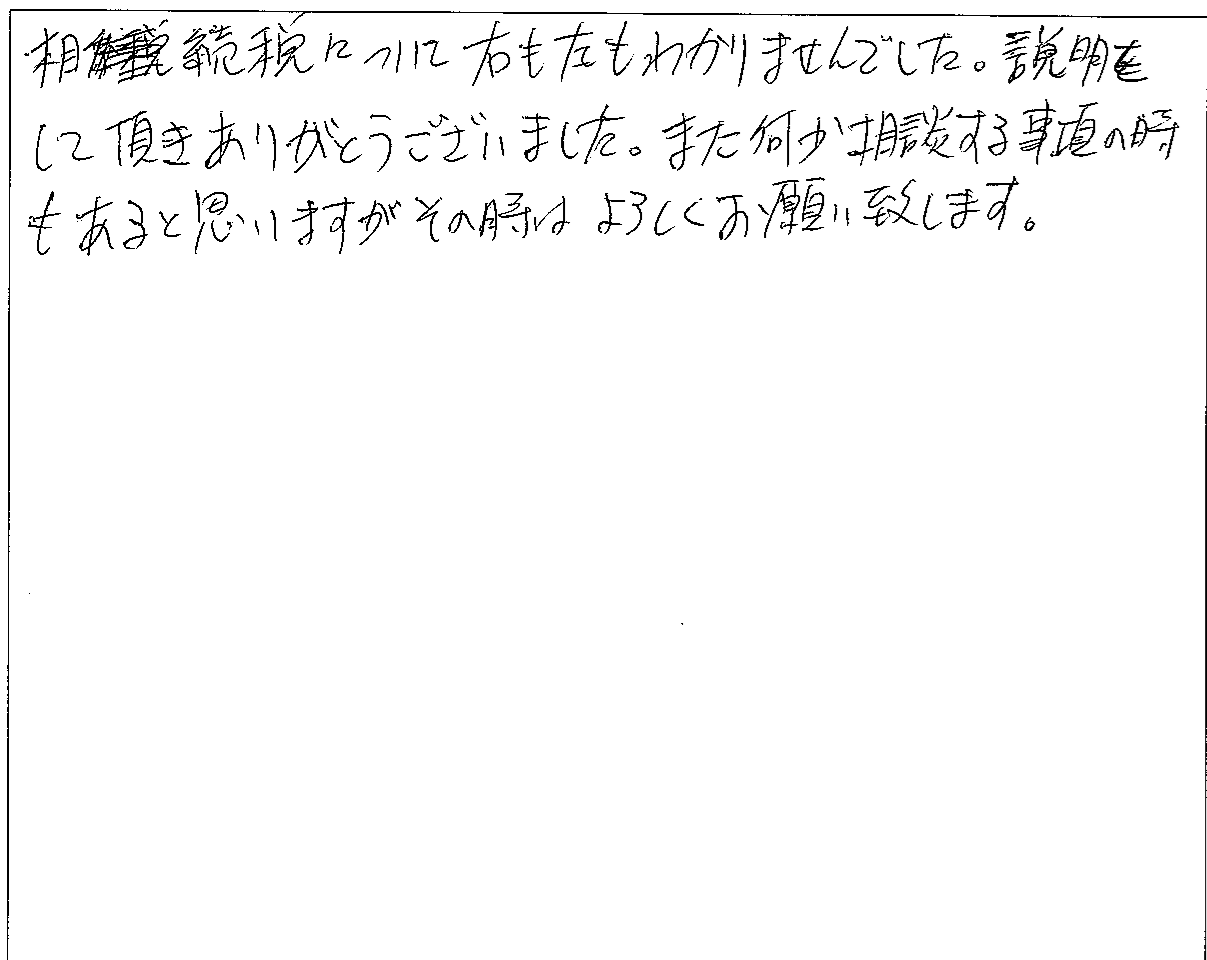 相続税についに右も左もわかりませんでした。説明を
して頂きありがとうございました。また何か相談する事項の時
もあると思いますがその時は よろしくお願い致します。